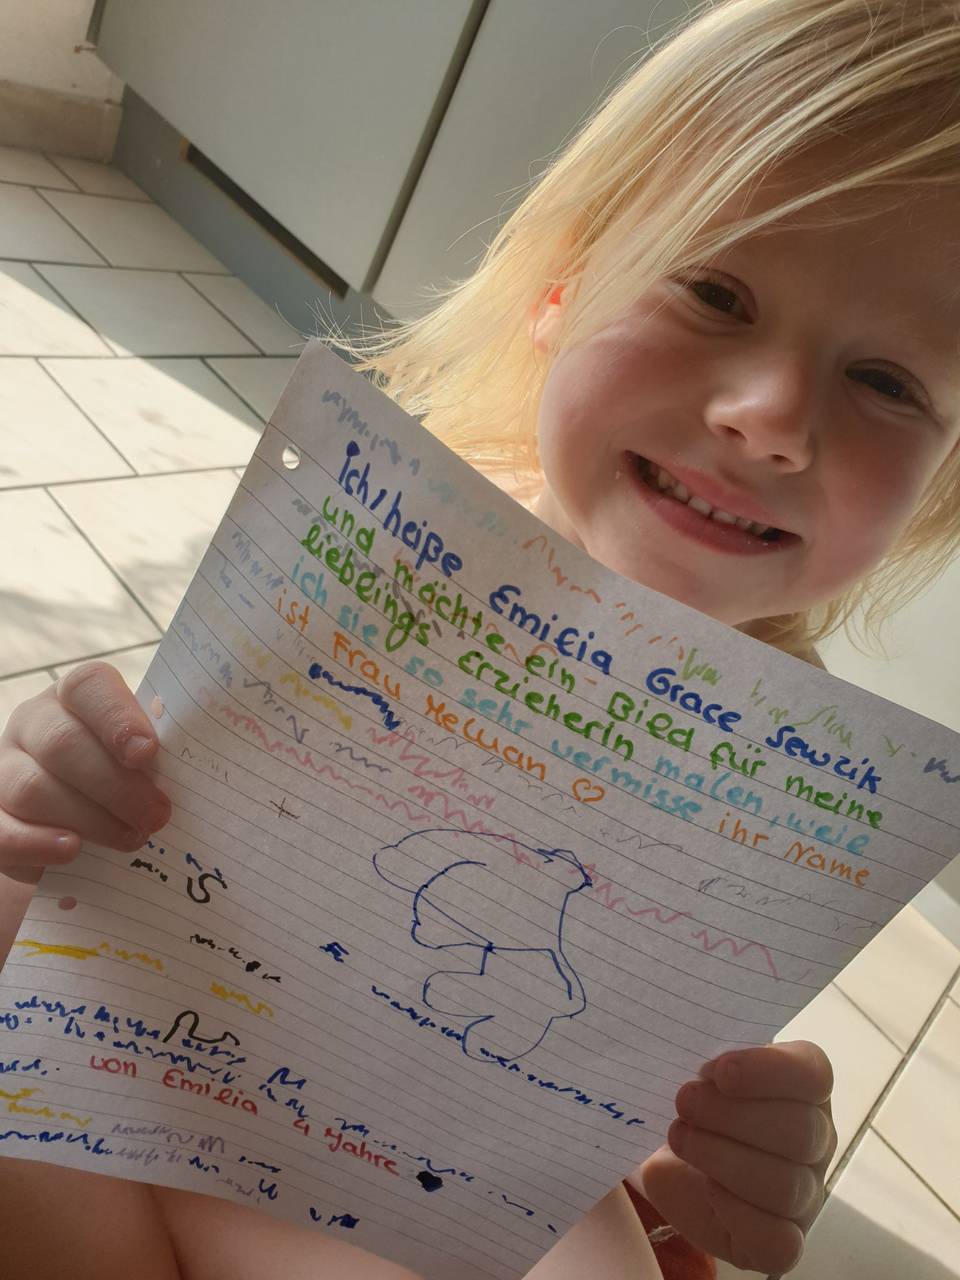 ich heiße Emilia Grace Sewzik
und möchte ein Bild für meine
lieblings Erzieherin malen, weie
ich sie so sehr vermisse ihr Name
ist Frau Mellwan ♡
von Emilia
4 Jahre